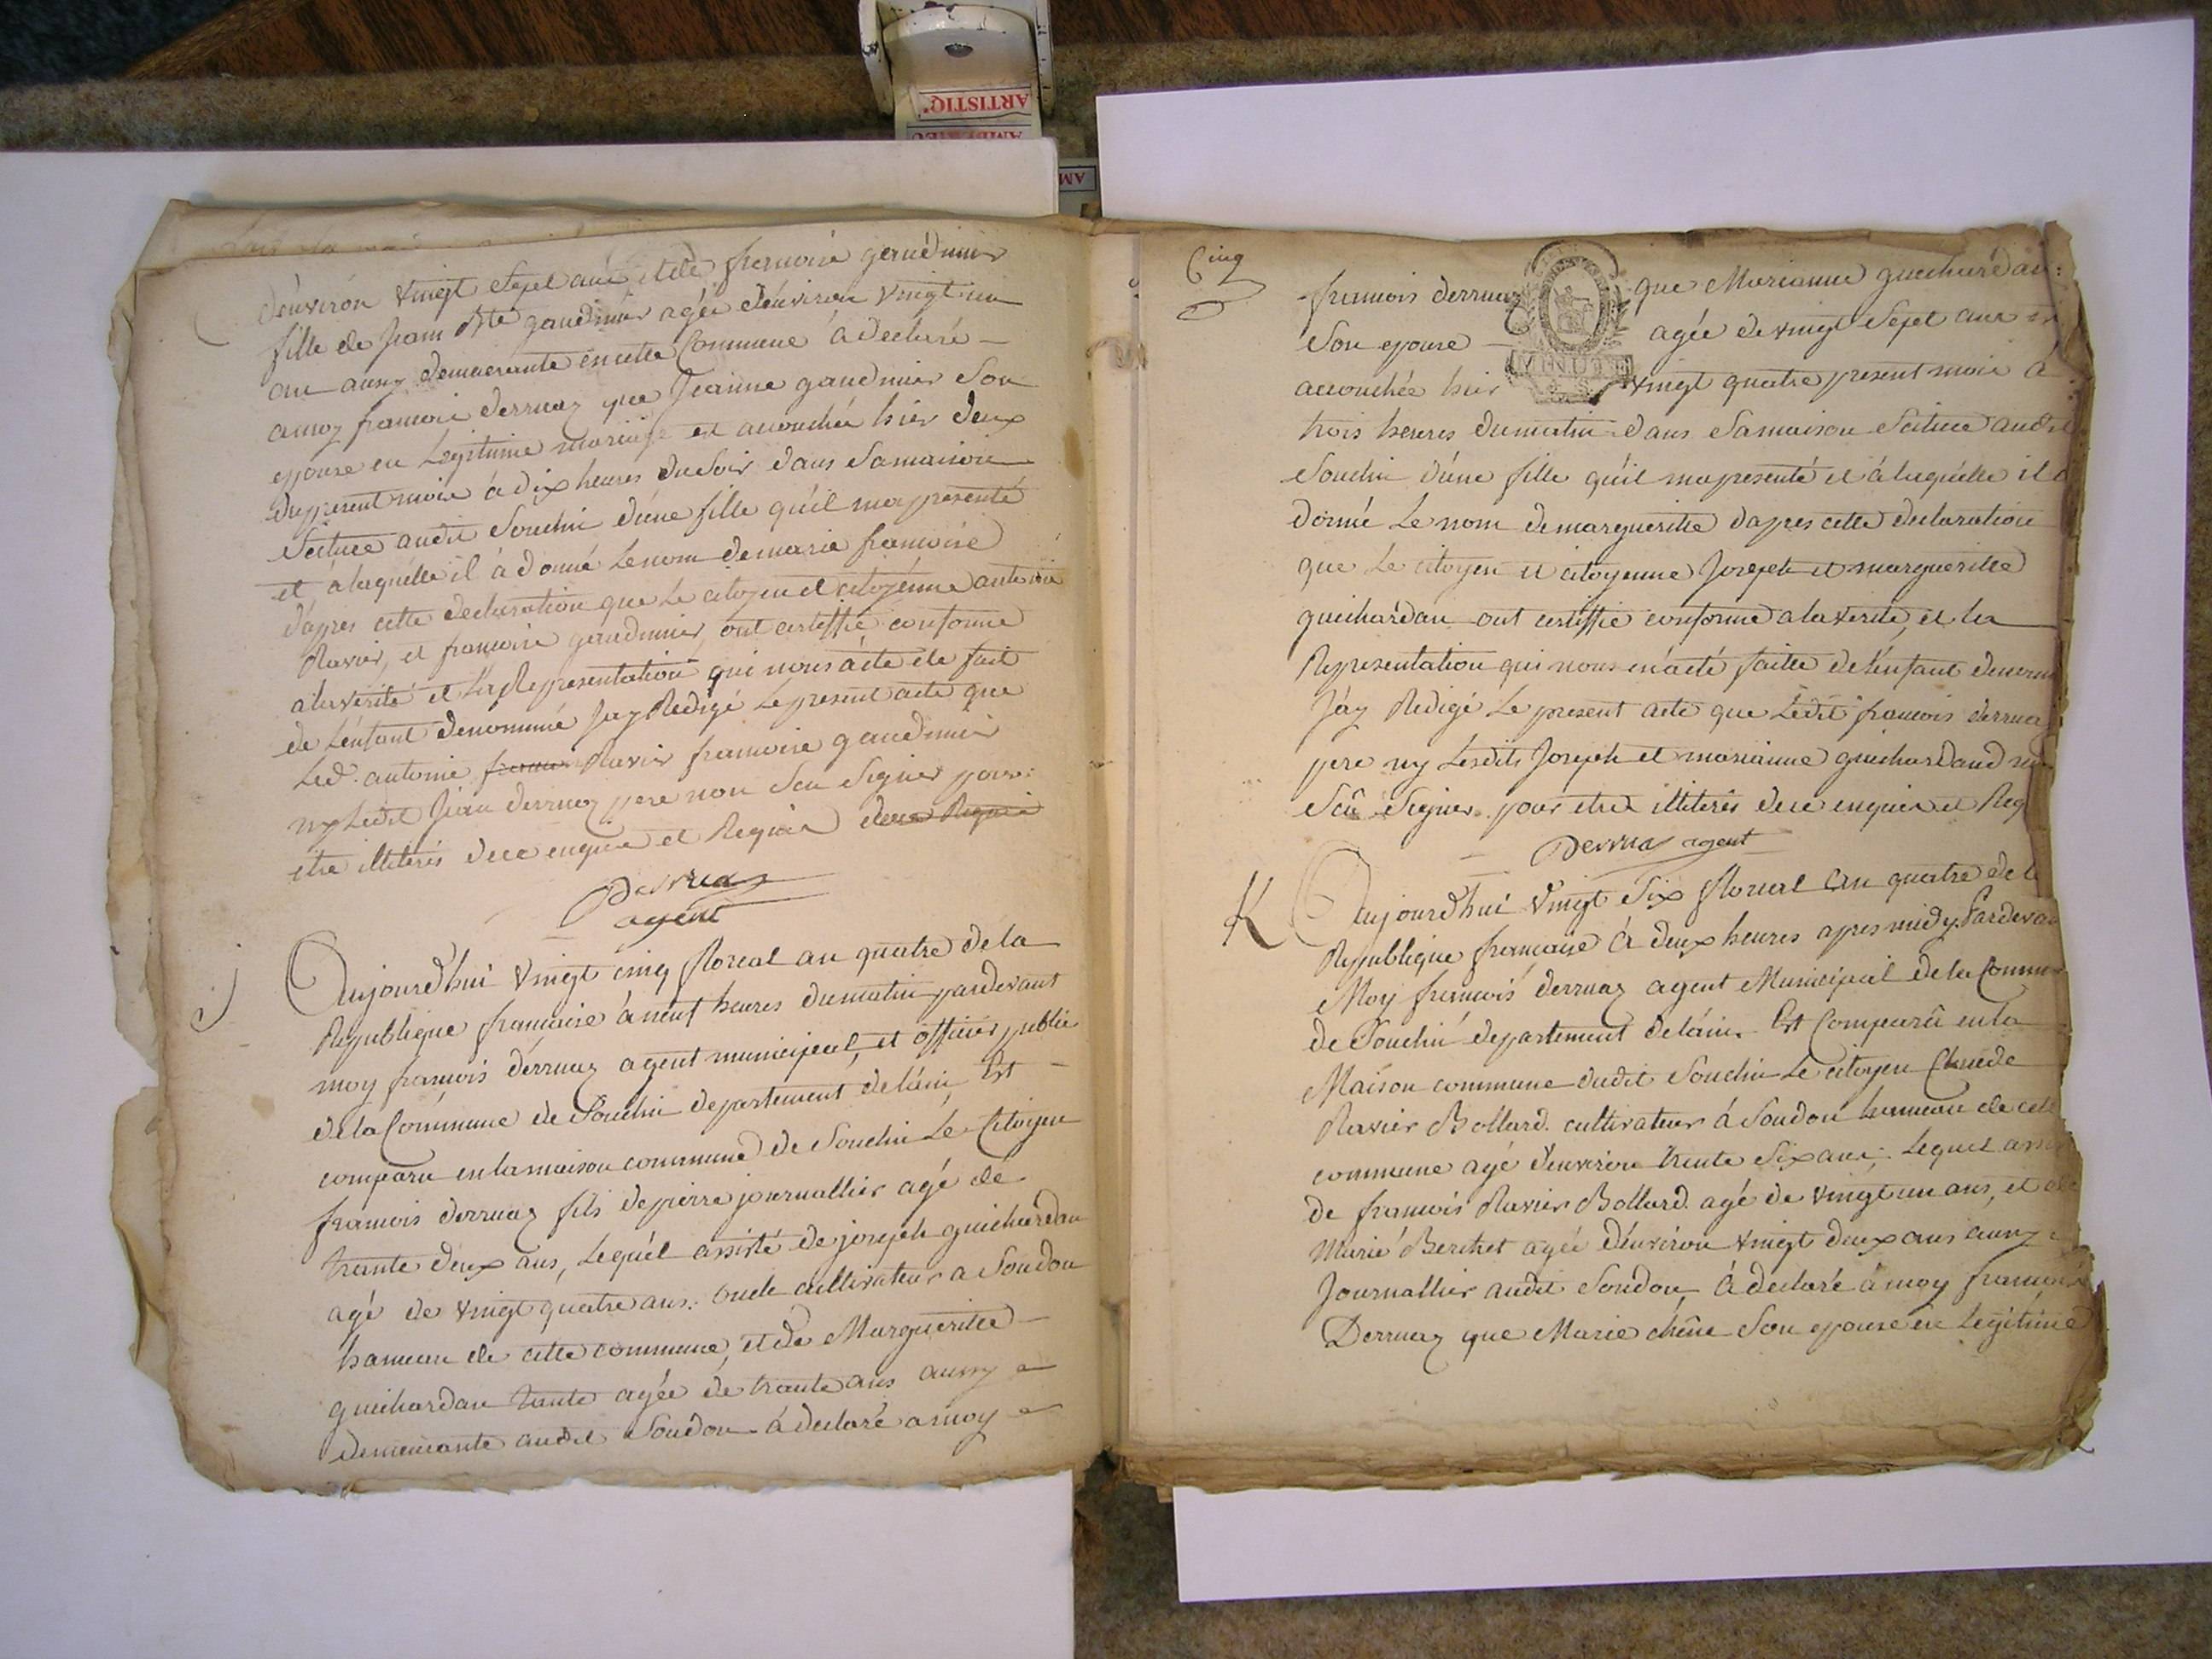 ARTISTIQ'
AM
d'environ vingt Sept ans et de francoise gaudmier
fille de Jean Bte gaudmier agée d'environ vingt un
ans aussy demeurante en cette Commune à declaré
a moy francois derruaz que Jeanne gaudmier Son
epouse en Legitime mariage est accouchée hier deux
du present mois à dix heures du Soir dans Sa maison
Scituée audit Souclin d'une fille qu'il m'a presenté
et à laquélle il à donné Le nom de marie francoise
d'apres cette declaration que Le citoyen et citoyénne antoine
Ravier, et francoise gaudmier, ont certiffié conforme
a la verité et La Representation qui nous à ete ete fait
de L'enfant denommé J'ay Redigé Le present acte que
Led. antoine francois Ravier francoise gaudmier
ny Ledit Jean derruaz pere non Scu Signer pour
etre illiterés de ce enquis et Requis de ce Requis
Derruaz
agent
J
Aujourd'hui vingt cinq floreal an quatre de la
Republique francaise à neuf heures du matin pardevant
moy francois dérruaz agent municipal, et officier public
de la Commune de Souclin departement de l'ain, Est
comparu en la maison commune de Souclin Le Citoyen
francois derruaz fils de pierre journallier agé de
trante deux ans, Lequél assisté de joseph guichardan
agé de vingt quatre ans. oncle cultivateur a Soudon
hameau de cette commune, et de Margueritte
guichardan tante agée de trante ans aussy
demeurante audit Soudon à declaré a moy
Cinq
francois derruaz que Marianne guichardan
Son epouse agée de vingt Sept ans
MINUTE
accouchée hier vingt quatre present mois à
trois heures du matin dans Sa maison Scituée audit
Souclin d'une fille qu'il m'a presenté et à laquélle il a
donné Le nom de margueritte d'apres cette declaration
que Le citoyen et citoyenne Joseph et margueritte
guichardan ont certiffié conforme a la verité, et la
Representation qui nous en à eté faitte de l'enfant denom
J'ay Redigé Le present acte que Ledit francois derruaz
pere ny Lesdits Joseph et marianne guichardand
Scû Signer pour etre illiterés de ce enquis et Req
Derruaz agent
K
Aujourd'hui Vingt Six floreal an quatre de la
Republique française à deux heures apres midy Pardevan
Moy francois derruaz agent Municipal de la Commun
de Souclin departement de l'ain. Est Comparû en la
Maison commune dudit Souclin Le citoyen Claude
Ravier Bollard. cultivateur à Soudon hameau de cette
commune agé d'environ trente Six ans; Lequel assi
de francois Ravier Bollard. agé de vingt un ans, et de
Marie Berthet agée d'environ vingt deux ans aussy
Journallier audit Soudon, à declaré à moy francois
Derruaz que Marie chêne Son epouse en Legitime